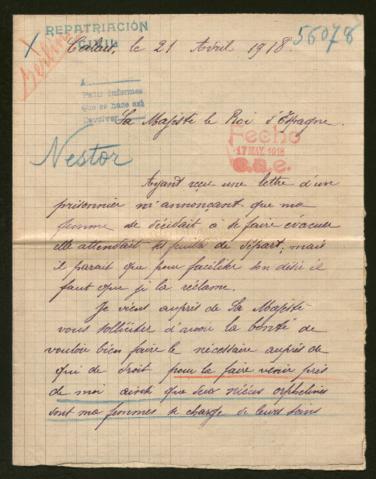 REPATRIACIÓN
CIVIL
Berlin
le 21 Avril 1918.
56078
Pedir informes
que se hace acá
Sa Majesté le Roi d'Espagne.
Fecho
17 MAY. 1918
Nestor
Ayant reçu une lettre d'un
prisonnier m'annonçant que ma
femme se décidait à se faire évacuer
elle attendait sa feuille de départ, mais
il parait que pour faciliter son désir il
faut que je la réclame.
Je viens auprès de Sa Majesté
vous solliciter d'avoir la bonté de
vouloir bien faire le nécessaire auprès de
qui de droit pour la faire venir près
de moi ainsi que deux nièces orphelines
dont ma femme se charge de leurs soins